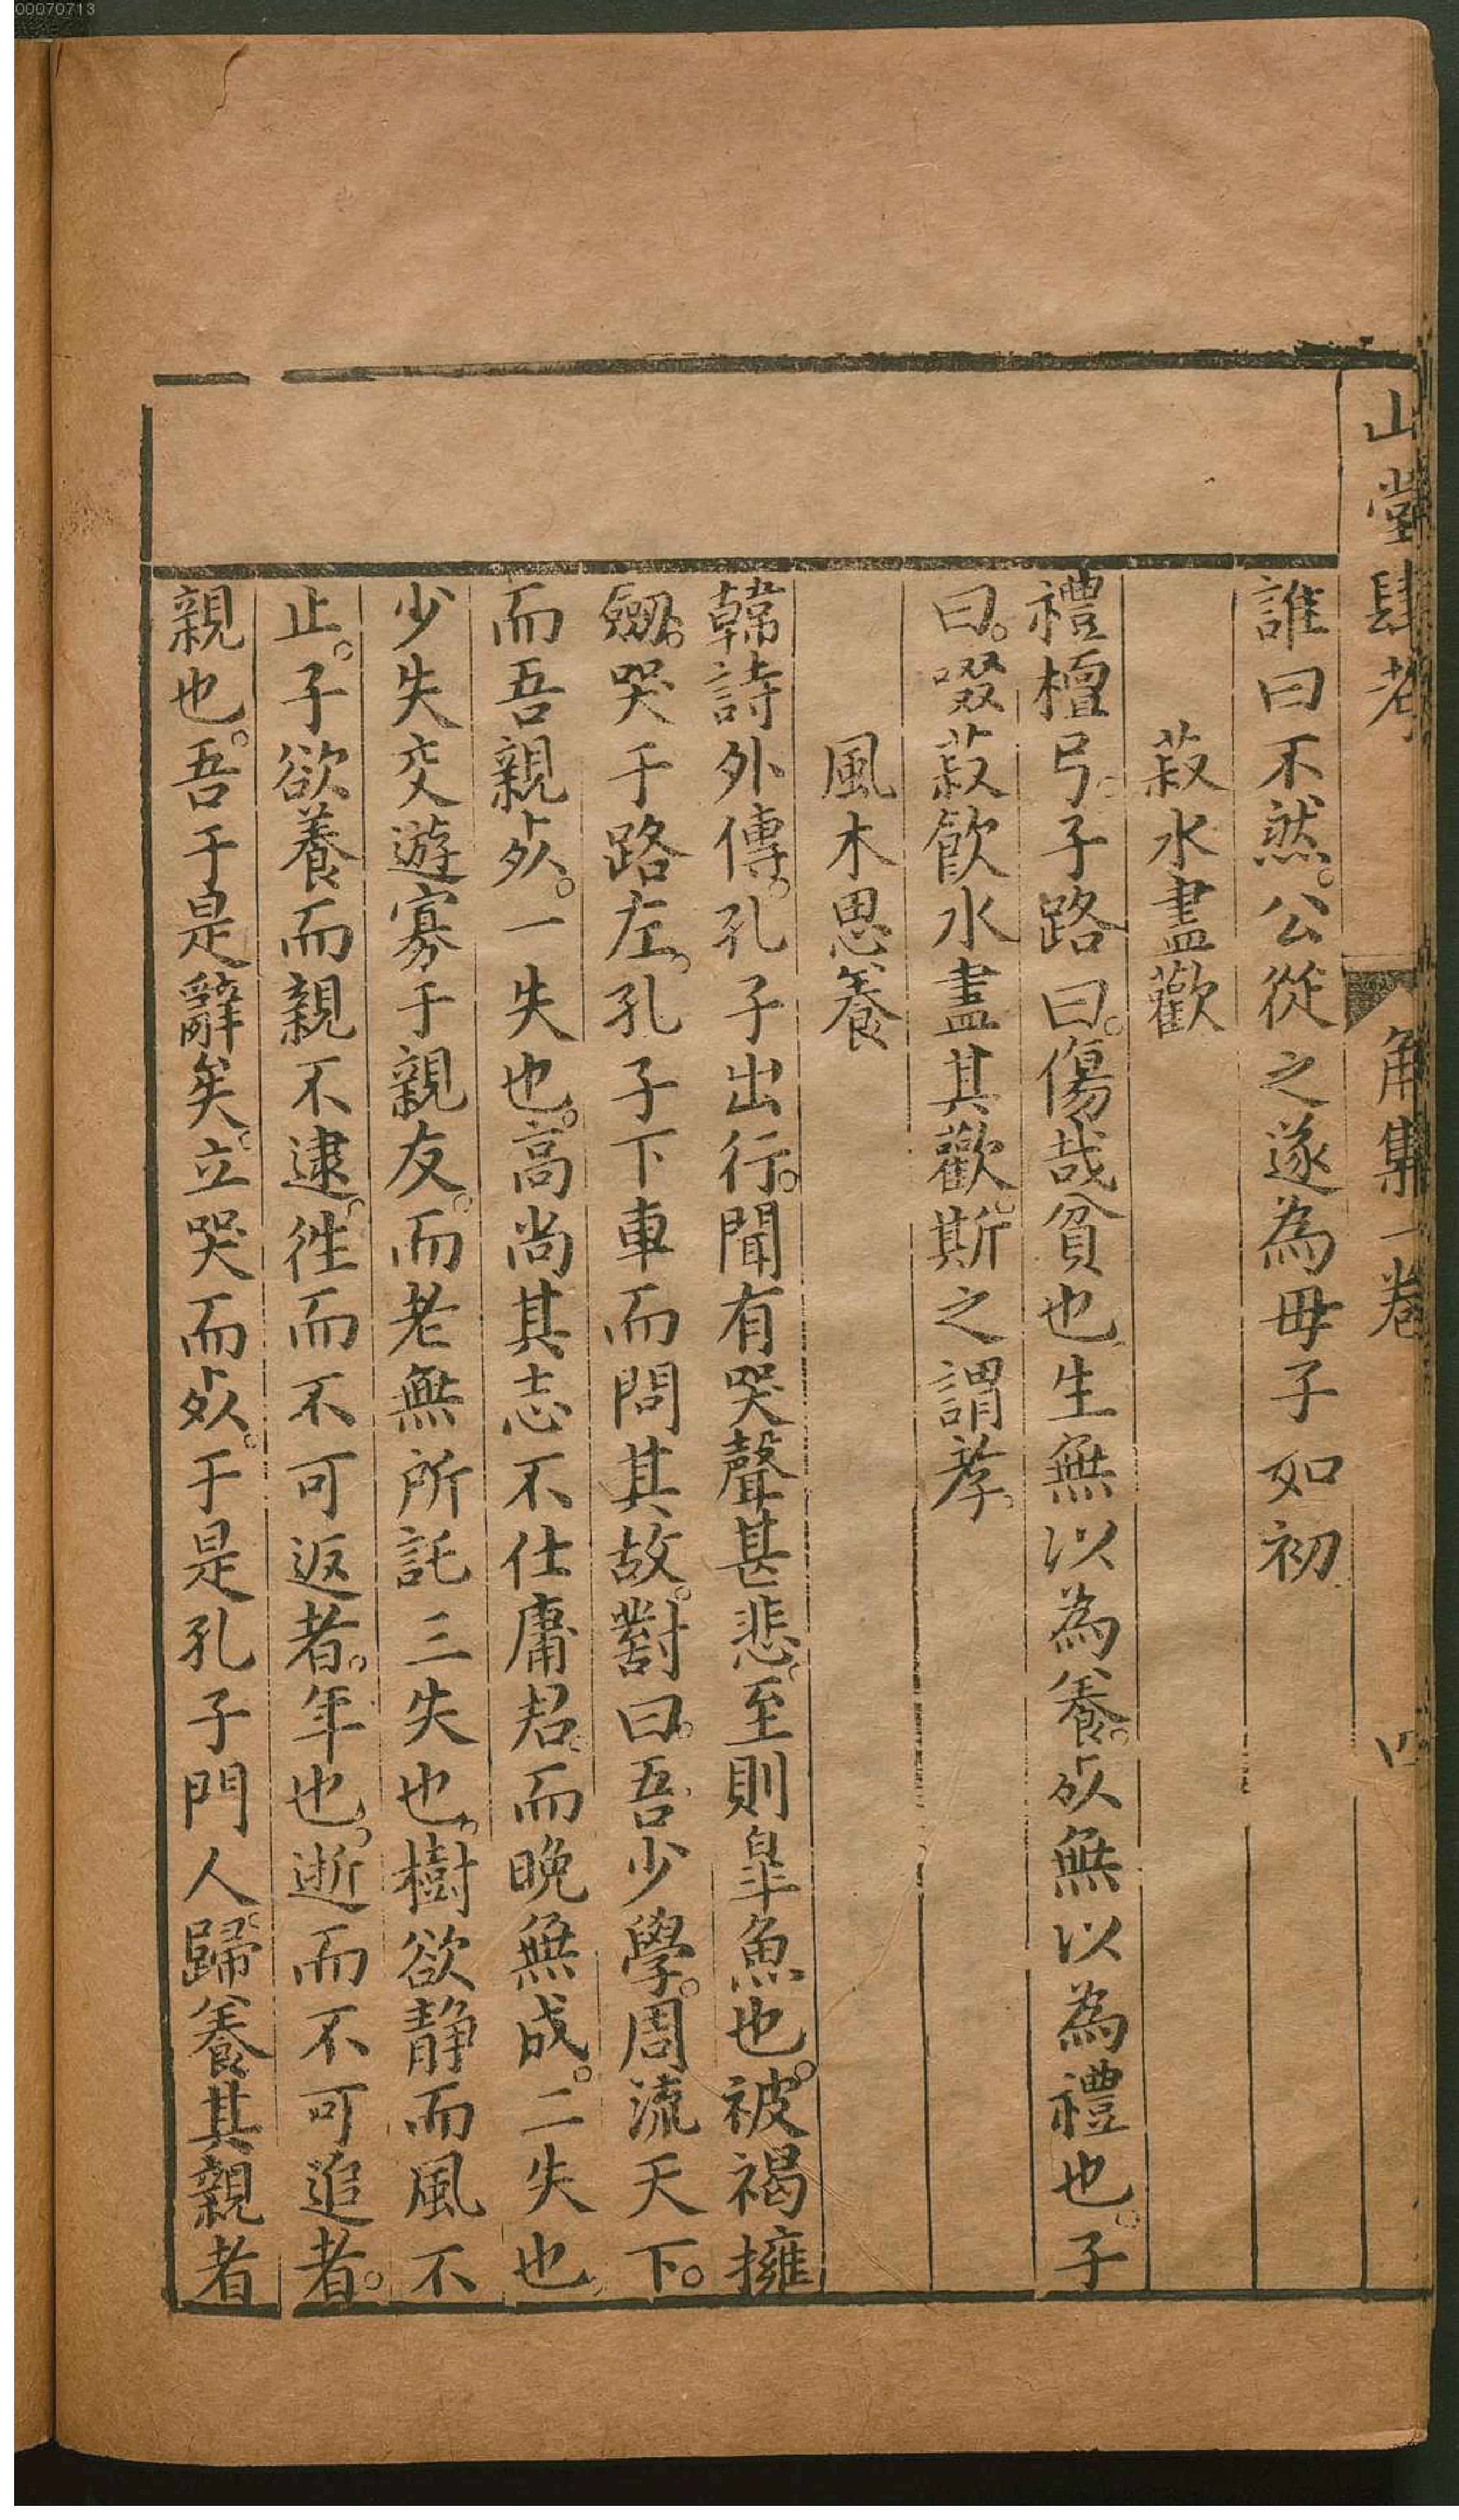 00070713
山堂肆考 角集一卷 四
誰曰不然。公從之遂為毋子如初
菽水盡歡
禮檀弓。子路曰。傷哉貧也生無以為養。㱕無以為禮也。子
曰。啜菽飲水盡其歡。斯之謂孝。
風木思養
韓詩外傳。孔子出行。聞有哭聲甚悲。至則臯魚也。被褐擁
劒。哭于路左。孔子下車而問其故。對曰。吾少學。周流天下。
而吾親㱕。一失也。高尚其志不仕庸君。而晚無成。二失也。
少失交遊寡于親友。而老無所託三失也。樹欲静而風不
止。子欲養而親不逮。徃而不可返者。年也。逝而不可追者。
親也。吾于是辭矣。立哭而㱕。于是孔子門人。歸養其親者